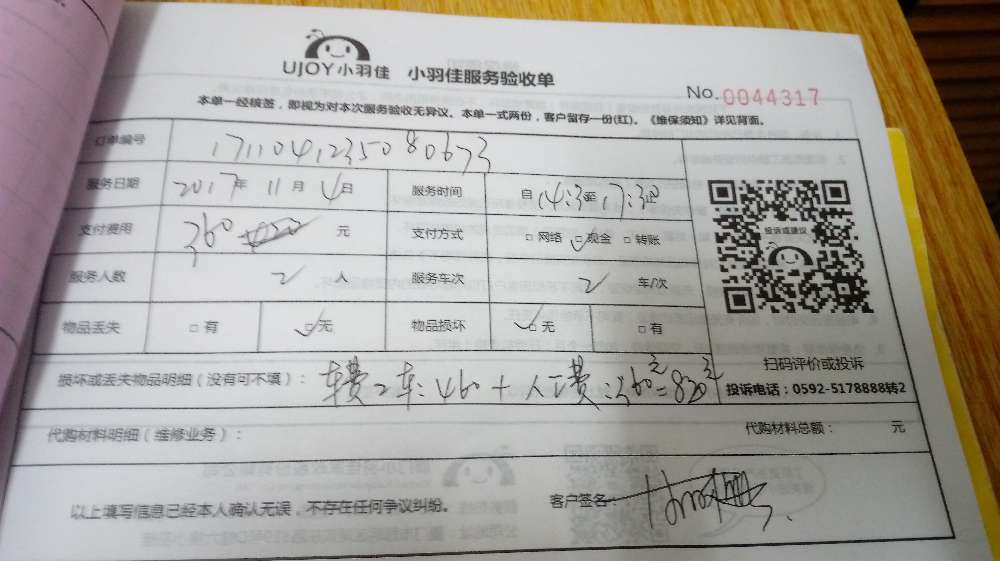 UJOY小羽佳 小羽佳服务验收单
No.0044317
本单一经核签，即视为对本次服务验收无异议。本单一式两份，客户留存一份(红)。《维保须知》详见背面。
订单编号 1711041235080673
服务日期 2017年 11月 4日 服务时间 自 14:3 至 17:30止
支付费用 360 元 支付方式 □网络 □现金 □转账
服务人数 2 人 服务车次 2 车/次
物品丢失 □有 □无 物品损坏 □无 □有
投诉或建议
扫码评价或投诉
投诉电话：0592-5178888转2
损坏或丢失物品明细（没有可不填）： 车费2车:460+人工费:360元=820元
代购材料明细（维修业务）： 代购材料总额： 元
以上填写信息已经本人确认无误，不存在任何争议纠纷。 客户签名：